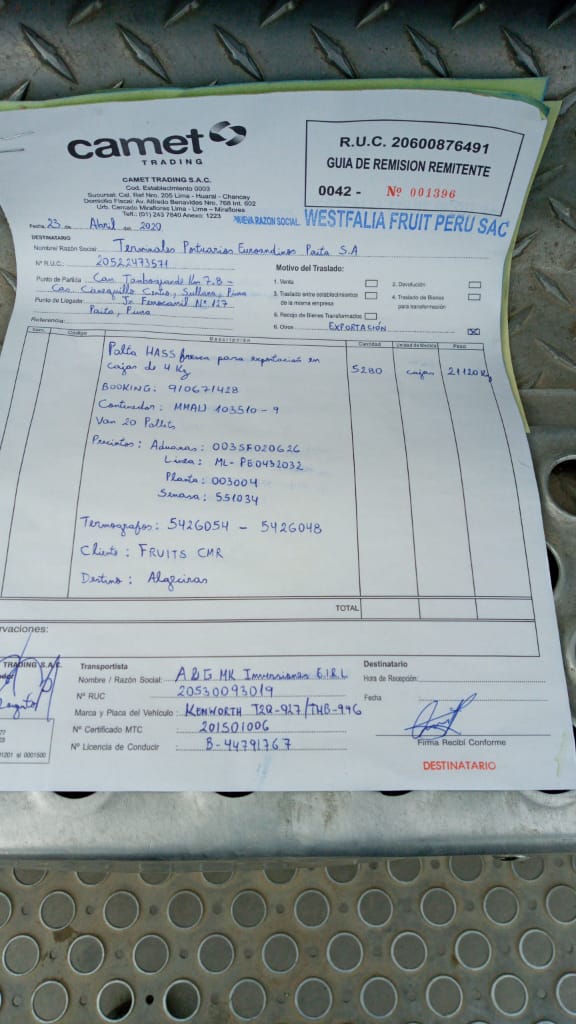 camet
TRADING
CAMET TRADING S.A.C.
Cod. Establecimiento 0003
Sucursal: Cal. Ref Nro. 205 Lima - Huaral - Chancay
Domicilio Fiscal: Av. Alfredo Benavides Nro. 768 Int. 602
Urb. Cercado Miraflores Lima - Lima - Miraflores
Telf.: (01) 243 7840 Anexo: 1223
R.U.C. 20600876491
GUIA DE REMISION REMITENTE
0042 - Nº 001396
NUEVA RAZON SOCIAL WESTFALIA FRUIT PERU SAC
Fecha, 23 de Abril de 2020
DESTINATARIO
Nombre/ Razón Social: Terminales Portuarios Euroandinos Paita S.A
Nº R.U.C. 20522473571
Punto de Partida: Car. Tambogrande Km 7.8 -
Cas. Cieneguillo Centro, Sullana, Piura
Punto de Llegada: Jr. Ferrocarril Nº 127
Paita, Piura
Referencia:
Motivo del Traslado:
1. Venta
2. Devolución
3. Traslado entre establecimientos de la misma empresa
4. Traslado de Bienes para transformación
5. Recojo de Bienes Transformados
6. Otros EXPORTACIÓN
Item. Código Descripción Cantidad Unidad de Medida Peso
Palta HASS fresca para exportación en 5280 cajas 21120 Kg
cajas de 4 Kg
BOOKING: 910671428
Contenedor: MMAU 103510-9
Van 20 Pallets
Precintos: Aduanas: 003SF020626
Línea: ML-PE0432032
Planta: 003004
Senasa: 551034
Termografos: 5426054 - 5426048
Cliente: FRUITS CMR
Destino: Algeciras
TOTAL
rvaciones:
TRADING S.A.C.
Transportista
Nombre / Razón Social: A&G MK Inversiones E.I.R.L
Nº RUC 20530093019
Marca y Placa del Vehículo: KENWORTH T2Q-927/THB-996
Nº Certificado MTC 201501006
Nº Licencia de Conducir : B-44791767
Destinatario
Hora de Recepción:
Fecha
Firma Recibí Conforme
DESTINATARIO
01201 al 0001500